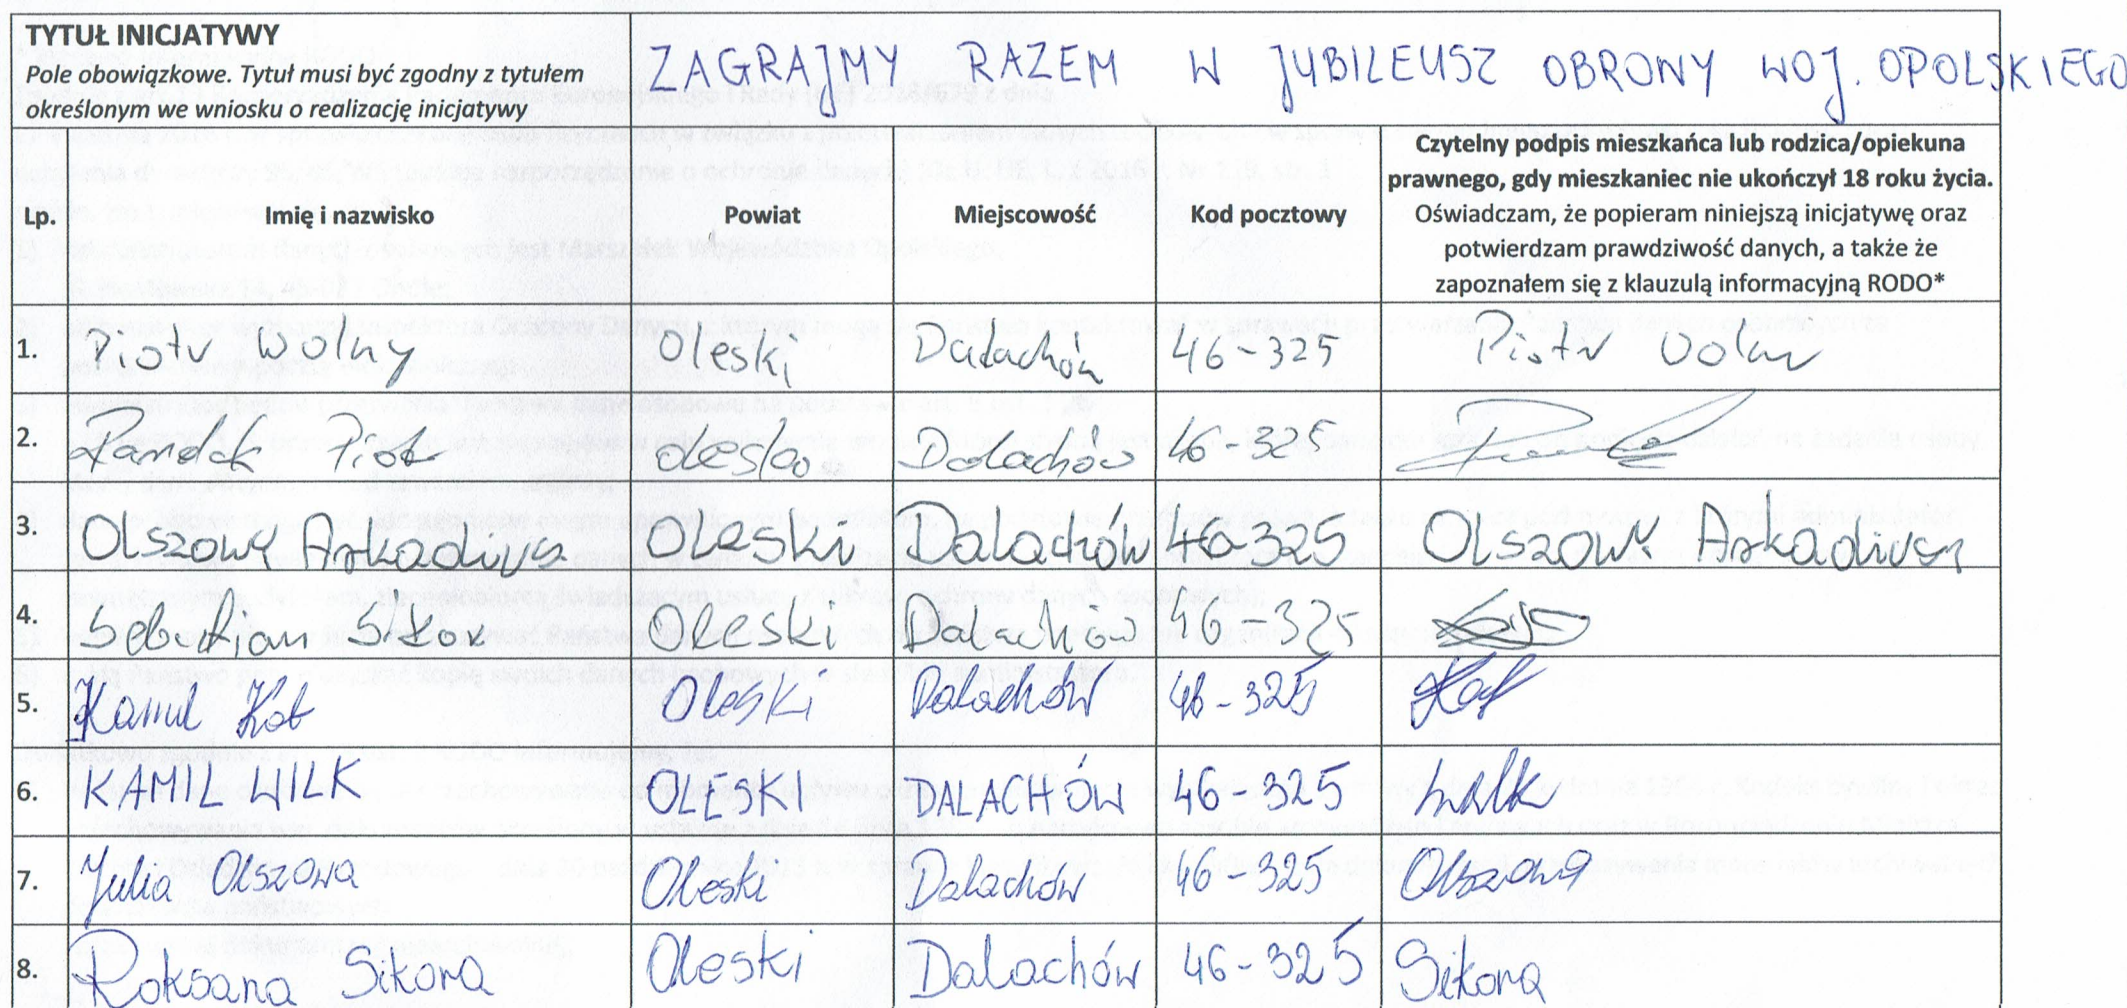 TYTUŁ INICJATYWY
Pole obowiązkowe. Tytuł musi być zgodny z tytułem
określonym we wniosku o realizację inicjatywy
ZAGRAJMY RAZEM W JUBILEUSZ OBRONY WOJ. OPOLSKIEGO
Lp.
Imię i nazwisko
Powiat
Miejscowość
Kod pocztowy
Czytelny podpis mieszkańca lub rodzica/opiekuna
prawnego, gdy mieszkaniec nie ukończył 18 roku życia.
Oświadczam, że popieram niniejszą inicjatywę oraz
potwierdzam prawdziwość danych, a także że
zapoznałem się z klauzulą informacyjną RODO*
1. Piotr Wolny Oleski Dalachów 46-325 Piotr Wolny
2. Piotr Dalachów 46-325
3. Olszowy Arkadiusz Oleski Dalachów 46-325 Olszowy Arkadiusz
4. Sebastian Oleski Dalachów 46-325
5. Kamil Kot Oleski Dalachów 46-325
6. KAMIL WILK OLESKI DALACHÓW 46-325 Wilk
7. Julia Olszowa Oleski Dalachów 46-325 Olszowa
8. Roksana Sikora Oleski Dalachów 46-325 Sikora